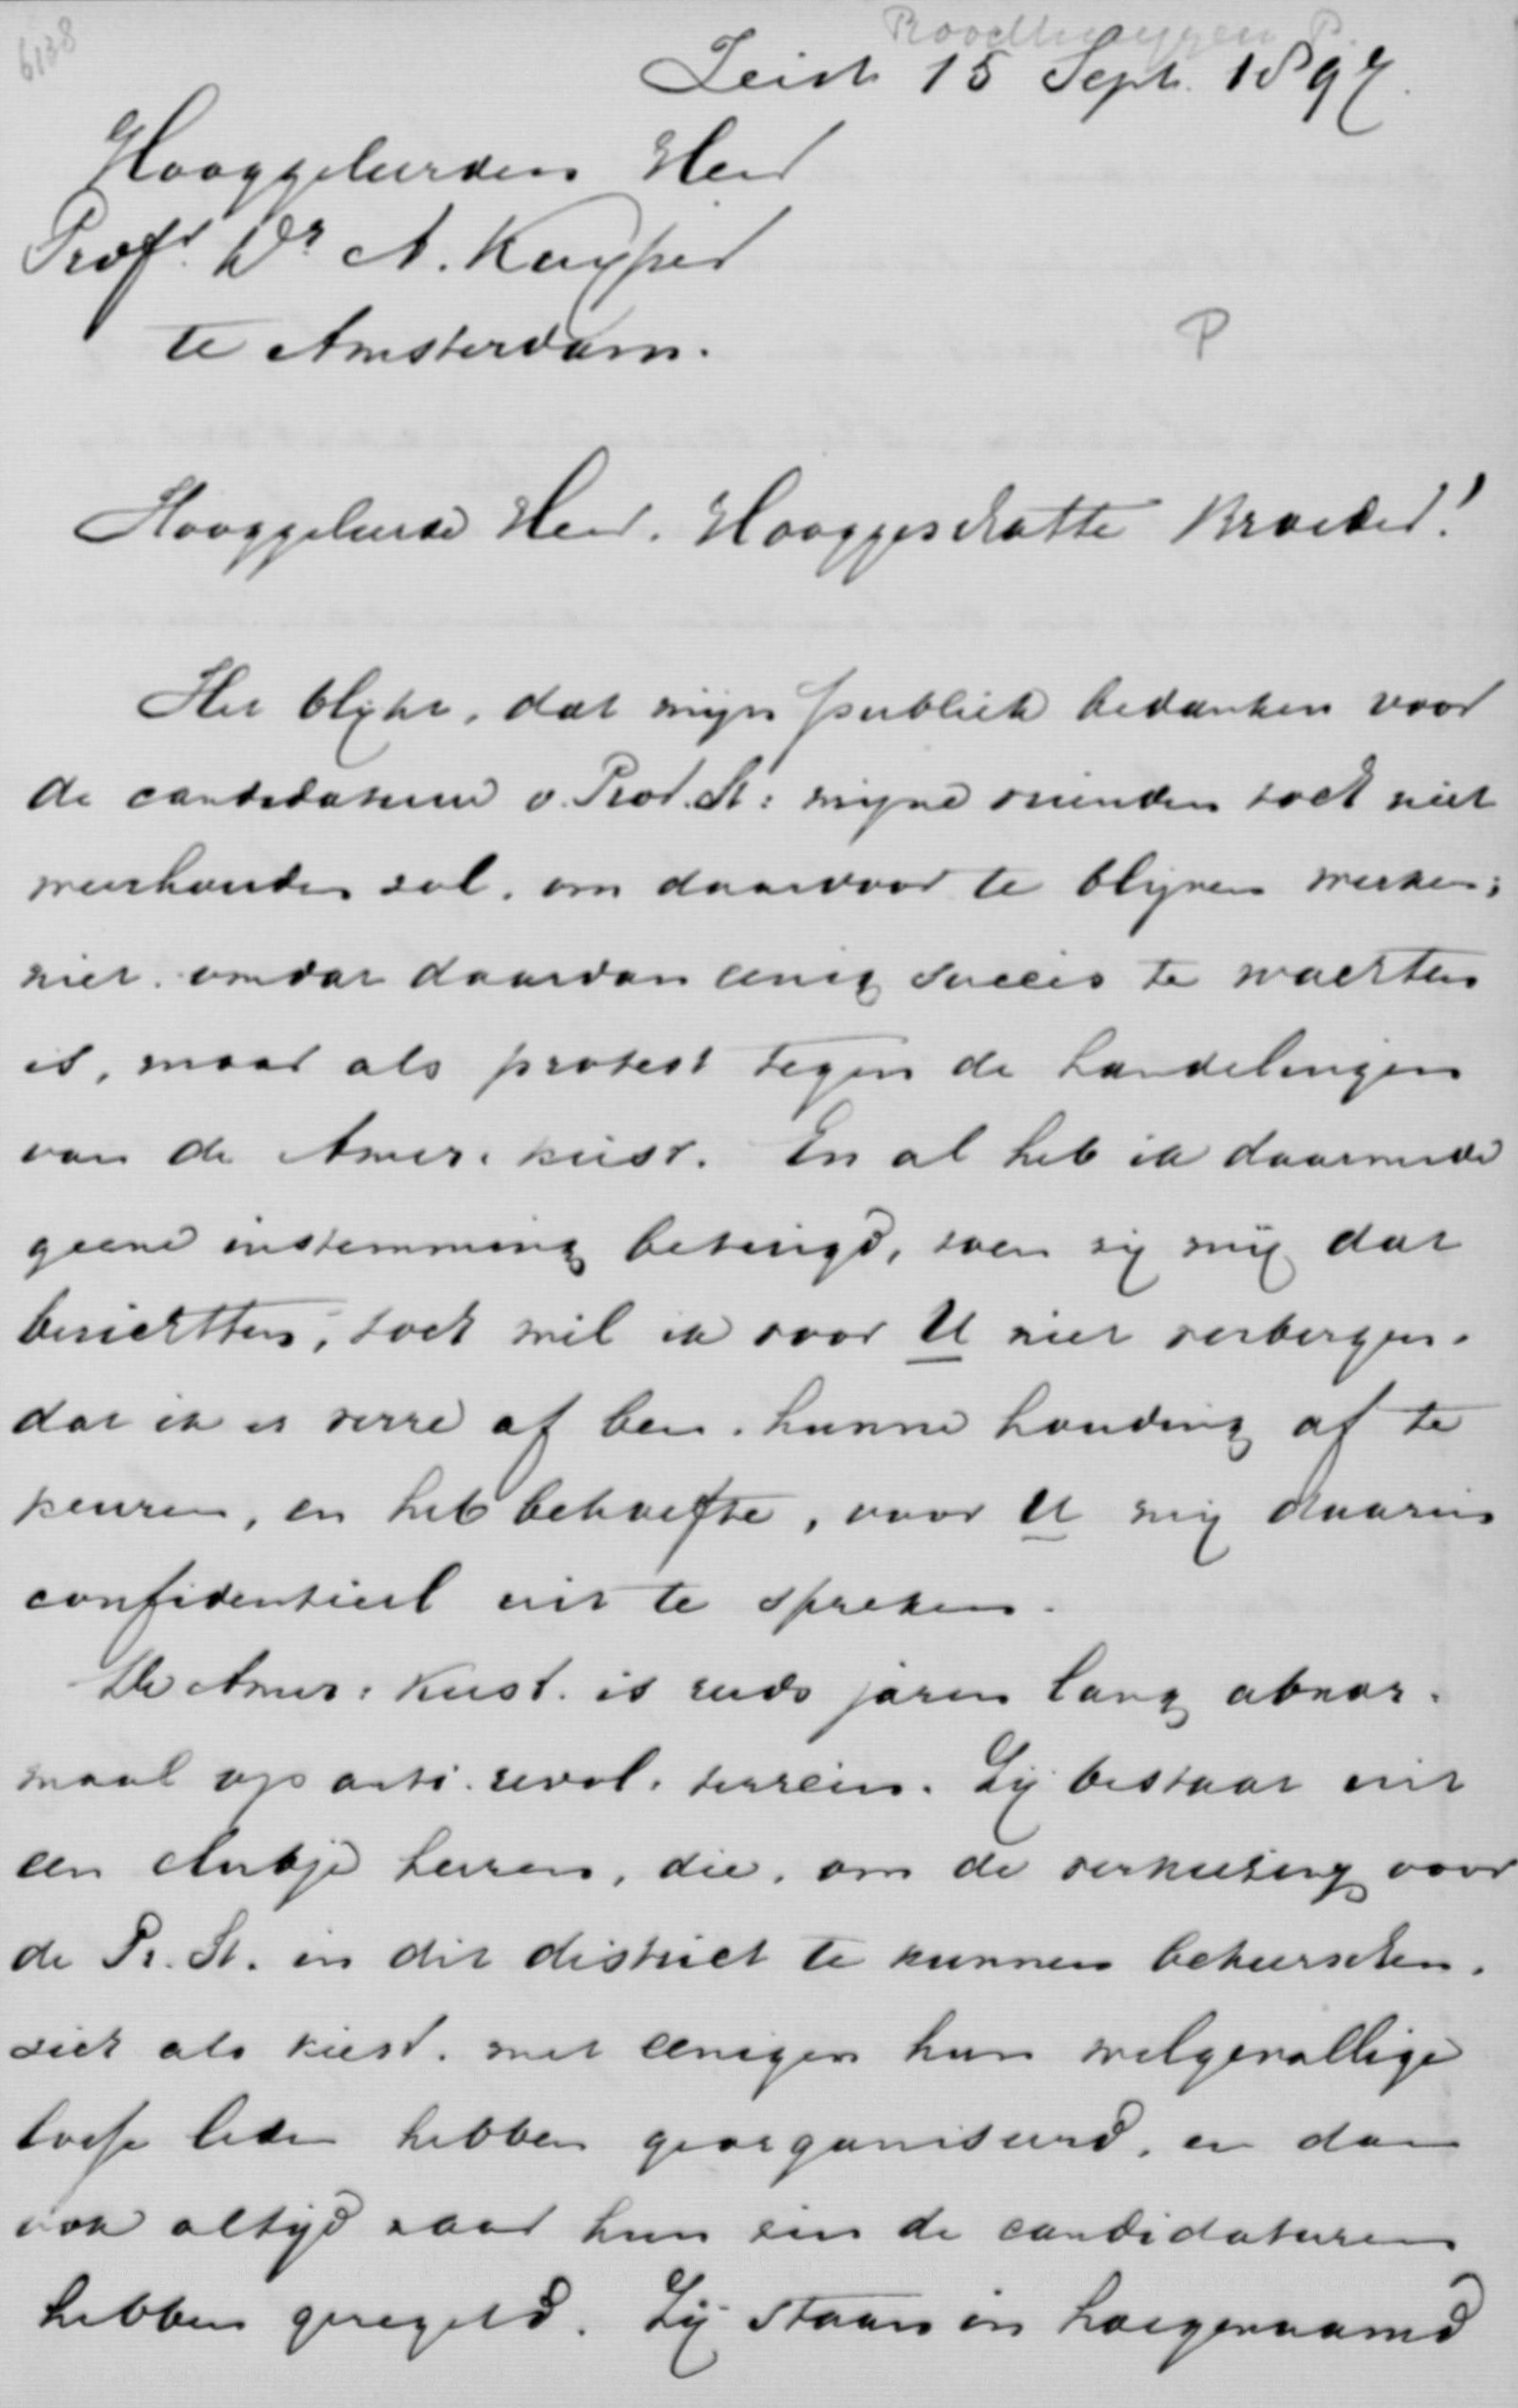 6138
Roodhuyzen P.
Zeist 15 Sept. 1897.
Hooggeleerden Heer
Profr. Dr A. Kuyper
te Amsterdam.
P
Hooggeleerde Heer. Hooggeschatte Broeder!
Het blijkt, dat mijn publiek bedanken voor
de candidatuur v. Prov. St: mijne vrienden toch niet
weerhouden zal, om daarvoor te blijven werken;
niet omdat daarvan eenig succes te wachten
is, maar als protest tegen de handelingen
van de Amer. kiesv. En al heb ik daarmede
geene instemming betuigd, toen zij mij dat
berichtten, toch wil ik voor U niet verbergen.
dat ik er verre af ben. hunne houding af te
keuren, en heb behoefte, voor U mij daarin
confidentieel uit te spreken.
De Amer. Kiesv. is reeds jaren lang abnor-
maal op anti. revol. terrein. Zij bestaat uit
een clubje heeren, die, om de verkiezing voor
de Pr. St. in dit district te kunnen beheerschen.
zich als kiesv. met eenigen hun welgevallige
losse leden hebben georganiseerd, en dan
ook altijd naar hun zin de candidaturen
hebben geregeld. Zij staan in hoegenaamd